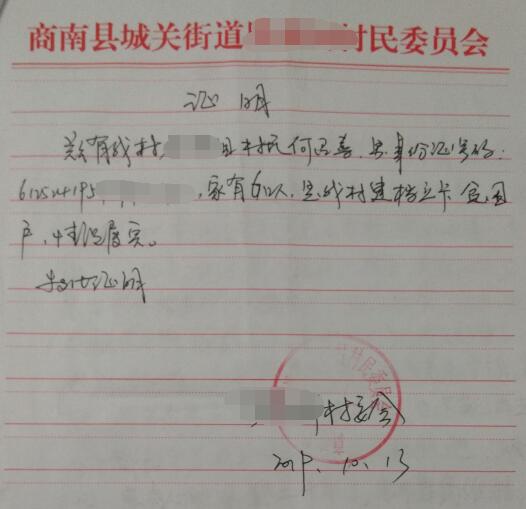 商南县城关街道 村民委员会
证明
兹有我村 组村民何召喜,男,身份证号码:
612524195 ,家有6口人,是我村建档立卡贫困
户,情况属实。
特此证明
村民委员会
村委会
2017.10.13